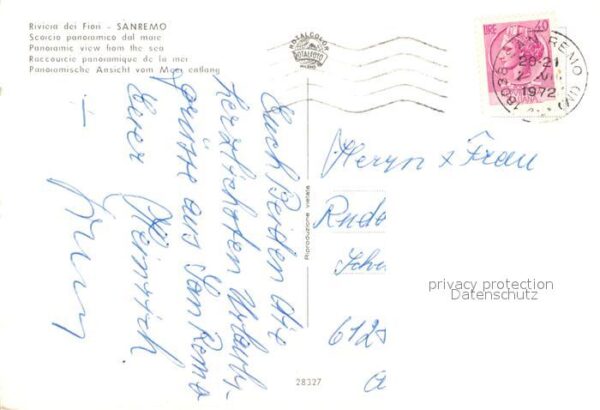 Riviera dei Fiori - SANREMO
Scorcio panoramico dal mare
Panoramic view from the sea
Raccourcie panoramique de la mer
Panoramische Ansicht vom Meer entlang
ROTALCOLOR
ROTALFOTO
MILANO
LIRE 40
ITALIANA
18038 - SANREMO (IM)
20-21
1972
Euch Beiden die
herzlichsten Urlaubs-
grüsse aus San Remo
Euer Heinrich
+
Herrn & Frau
Rudo
Sch
612
Riproduzione vietata
28327
privacy protection
Datenschutz